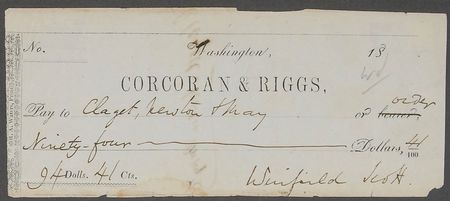 No. Washington, 18
CORCORAN & RIGGS,
Pay to Claget, Newton & May or bearer order
Ninety-four Dollars, 41/100
94 Dolls. 41 Cts. Winfield Scott.